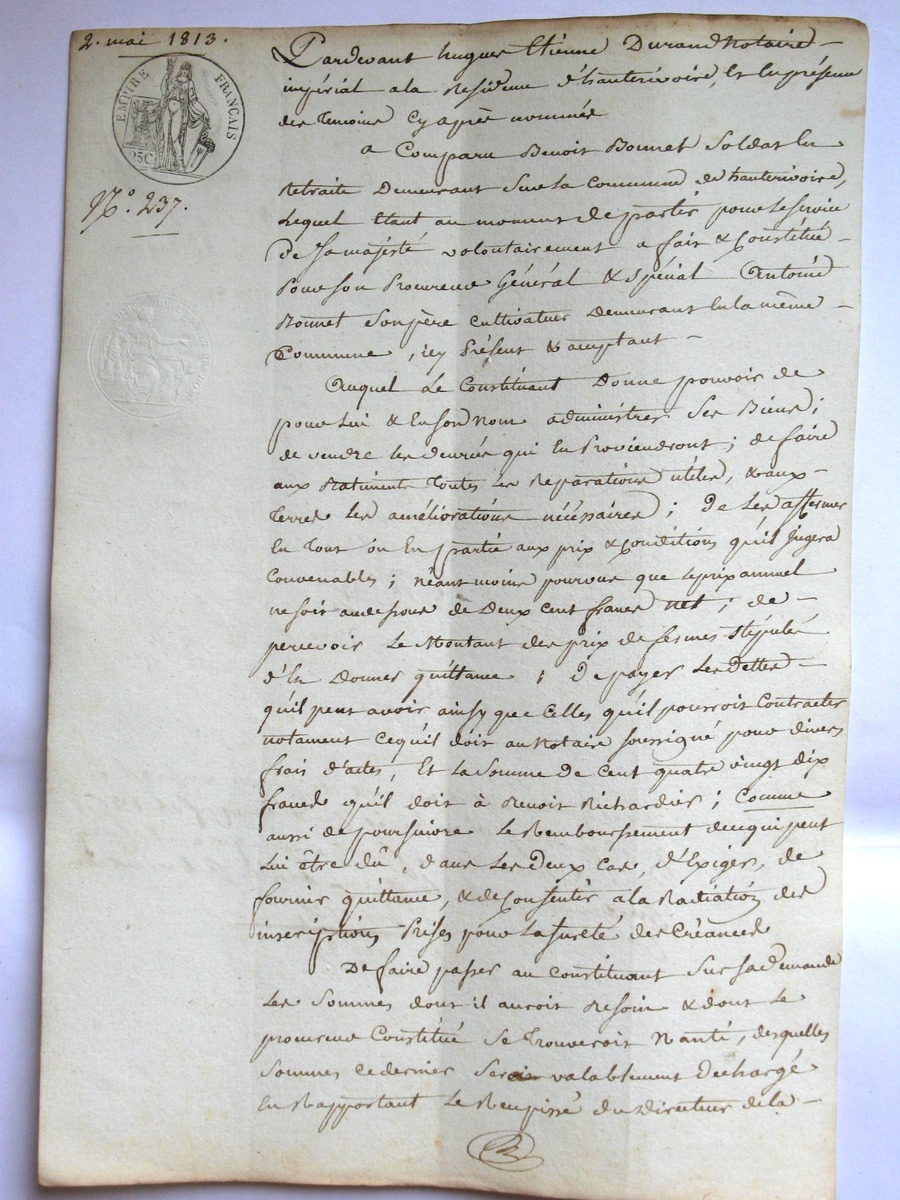 2. mai 1813.
EMPIRE FRANÇAIS
25C
N.° 237.
Pardevant hugues Etienne Durand Notaire
impérial a la Residence d'hauterivoire, Et En présence
des temoins Cy après nommés
a Comparu Benoit Bonnet Soldat En
Retraite Demeurant Sur la Commune de hauterivoire,
Lequel Etant au moment de partir pour le service
De Sa majesté volontairement a fait & Constitué
Pour son Procureur Général & Spécial Antoine
Bonnet Son père Cultivateur Demeurant En la même
Commune, icy Présent & acceptant
Auquel Le Constituant Donne pouvoir de
pour Lui & En son nom administrer Ses Biens;
de vendre les denrées qui En Proviendront; de faire
aux Batiments Toutes Les Reparations utiles, & aux
Terres Les améliorations nécéssaires; De Les affermer
En Tout ou En partie aux prix & Conditions qu'il Jugera
Convenables; Néant moins pourvue que le prix annuel
ne soit au dessous de Deux Cent francs net; de
percevoir Le Montant des prix de fermes Stipulés
d'En Donner quittance; De payer Les Dettes
qu'il peut avoir ainsy que Celles qu'il pourroit Contracter
notament Ce qu'il doit au Notaire soussigné pour divers
frais d'actes, Et La Somme De Cent quatre vingt dix
francs qu'il doit à Benoit Richardier; Comme
aussi de poursuivre Le Remboursement de ce qui peut
Lui être dû, dans Les Deux Cas, d'Exiger, de
fournir quittance, & de Consentir a la Radiation des
inscriptions Prises pour La Sureté des Créances
De faire passer au Constituant Sur sa Demande
Les Sommes dont il auroit Besoin & dont Le
procureur Constitué Se Trouveroit Nanti, desquelles
Sommes ce dernier Serait valablement Déchargé
En Rapportant Le Recepissé du Directeur de la